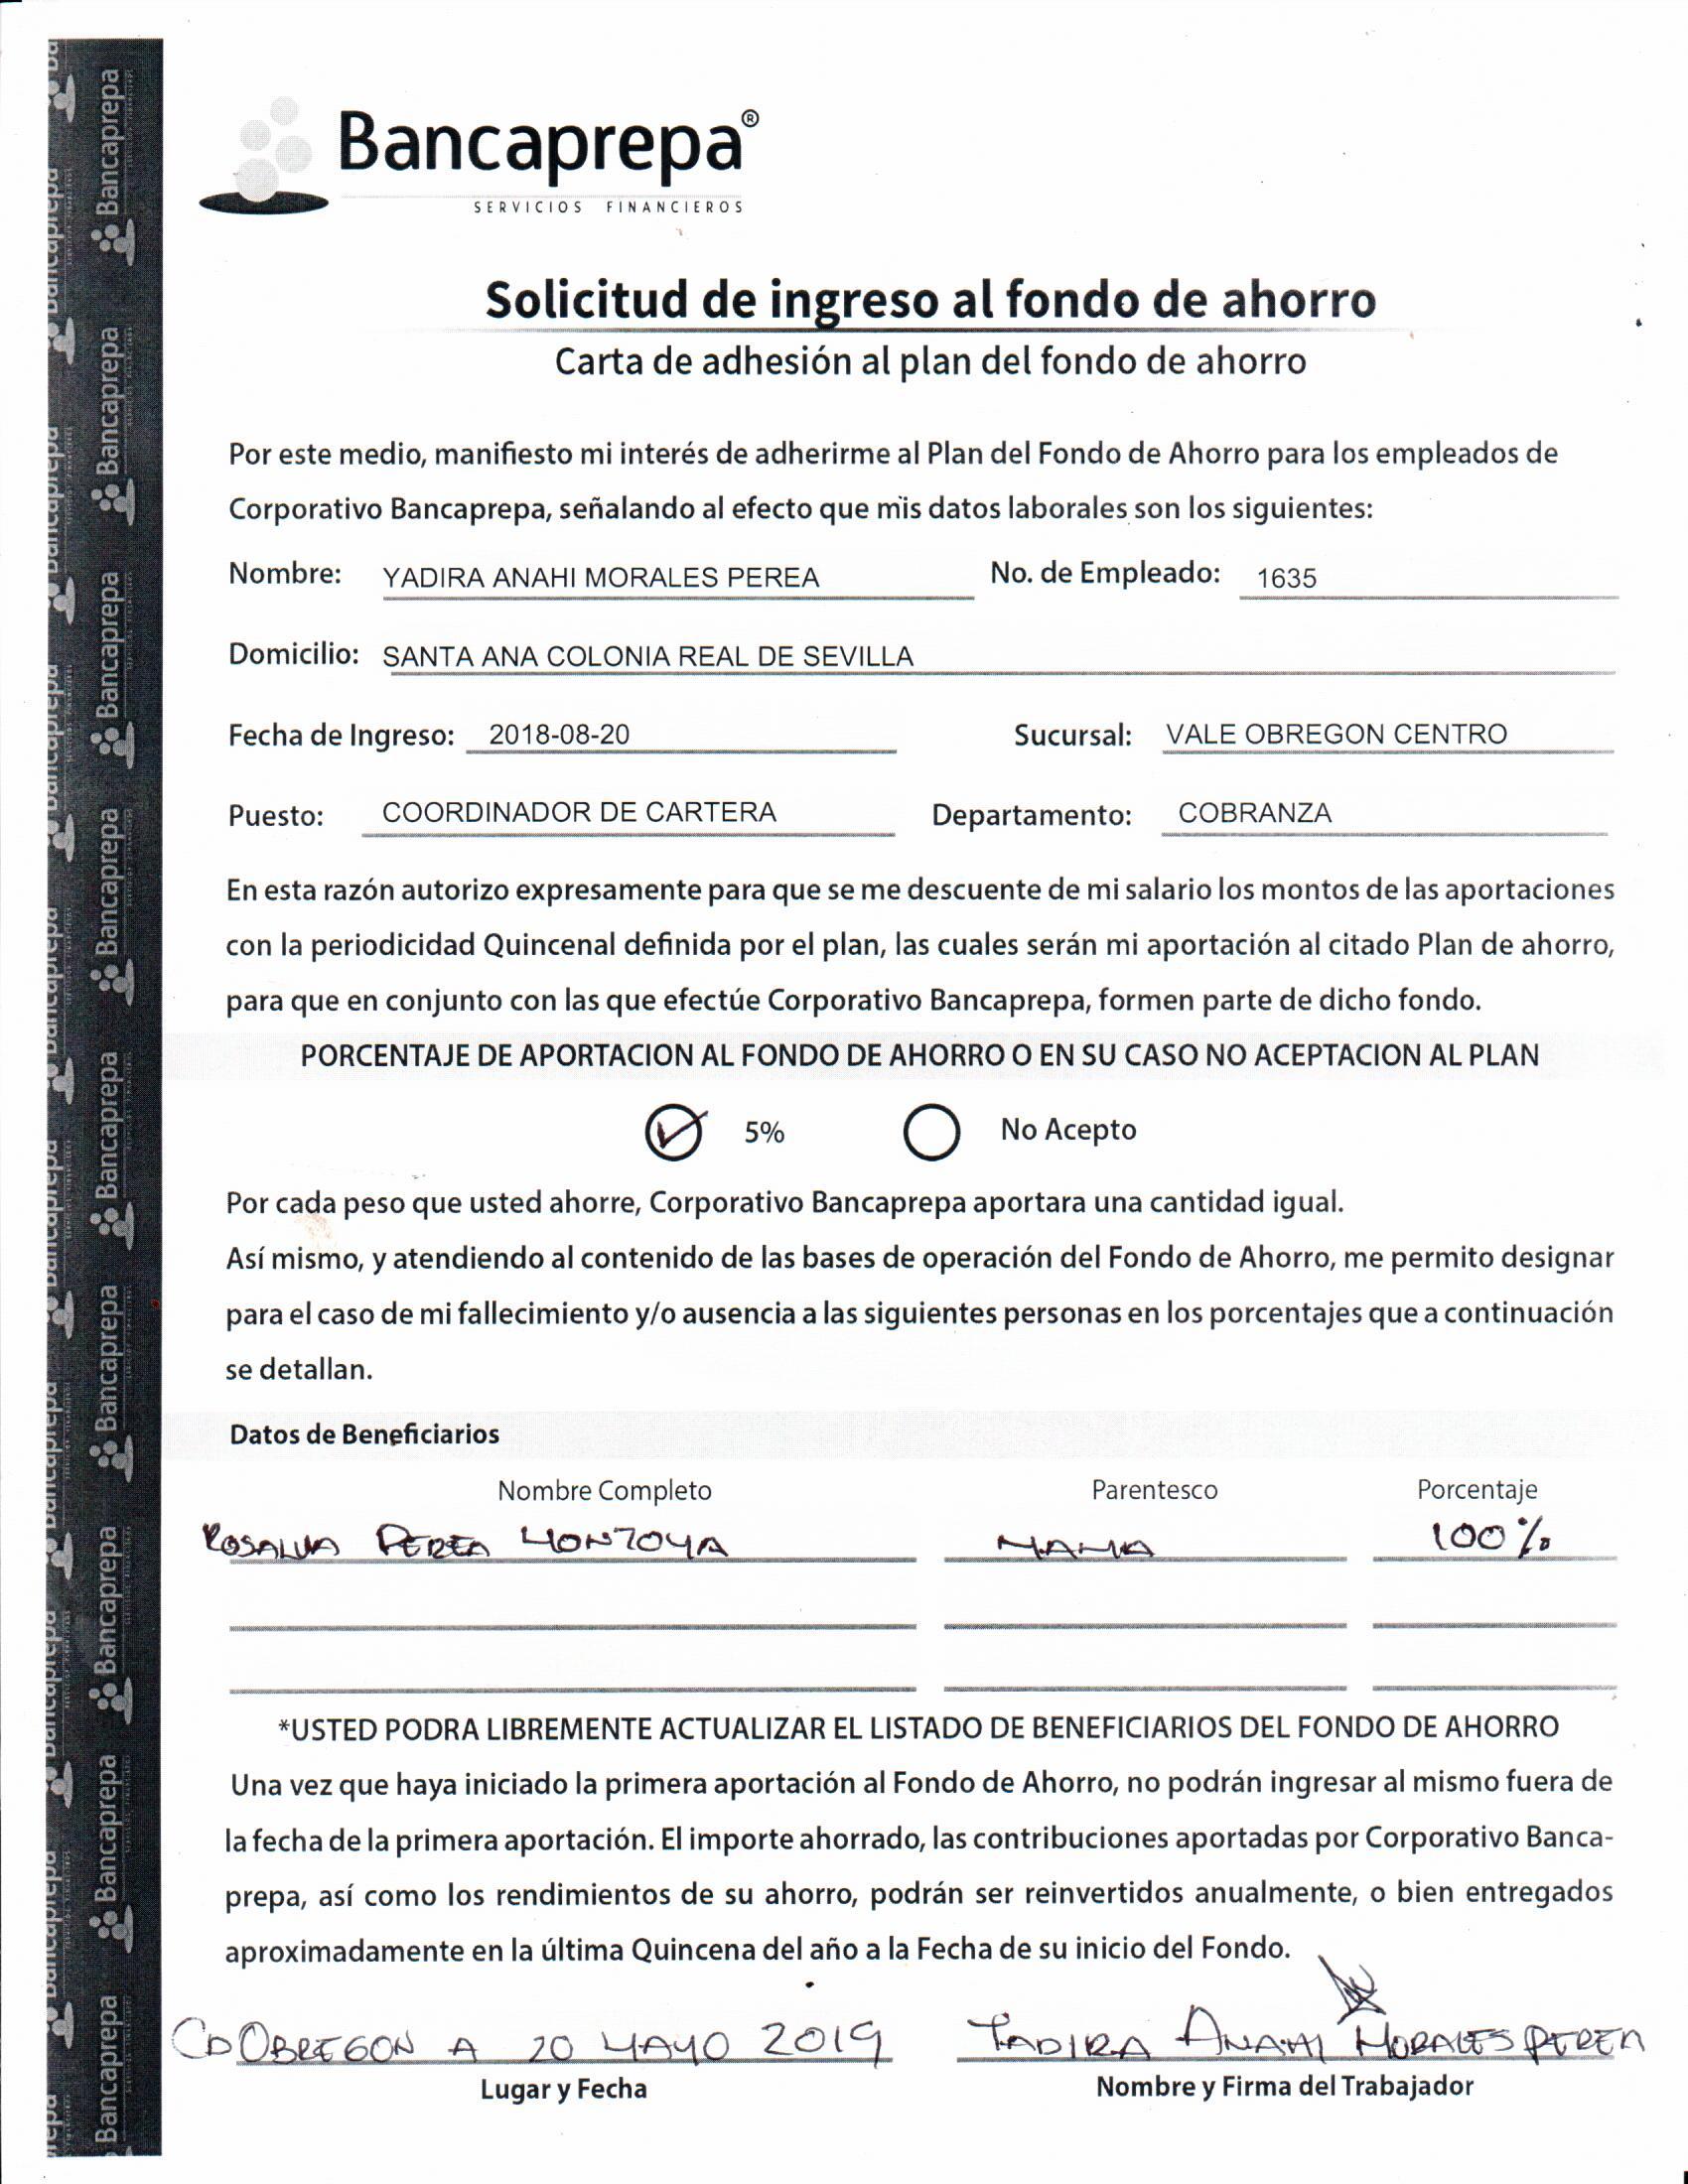 Bancaprepa®
SERVICIOS FINANCIEROS
Solicitud de ingreso al fondo de ahorro
Carta de adhesión al plan del fondo de ahorro
Por este medio, manifiesto mi interés de adherirme al Plan del Fondo de Ahorro para los empleados de
Corporativo Bancaprepa, señalando al efecto que mis datos laborales son los siguientes:
Nombre: YADIRA ANAHI MORALES PEREA No. de Empleado: 1635
Domicilio: SANTA ANA COLONIA REAL DE SEVILLA
Fecha de Ingreso: 2018-08-20 Sucursal: VALE OBREGON CENTRO
Puesto: COORDINADOR DE CARTERA Departamento: COBRANZA
En esta razón autorizo expresamente para que se me descuente de mi salario los montos de las aportaciones
con la periodicidad Quincenal definida por el plan, las cuales serán mi aportación al citado Plan de ahorro,
para que en conjunto con las que efectúe Corporativo Bancaprepa, formen parte de dicho fondo.
PORCENTAJE DE APORTACION AL FONDO DE AHORRO O EN SU CASO NO ACEPTACION AL PLAN
5% No Acepto
Por cada peso que usted ahorre, Corporativo Bancaprepa aportara una cantidad igual.
Así mismo, y atendiendo al contenido de las bases de operación del Fondo de Ahorro, me permito designar
para el caso de mi fallecimiento y/o ausencia a las siguientes personas en los porcentajes que a continuación
se detallan.
Datos de Beneficiarios
Nombre Completo Parentesco Porcentaje
ROSALVA PEREA MONTOYA MAMA 100%
*USTED PODRA LIBREMENTE ACTUALIZAR EL LISTADO DE BENEFICIARIOS DEL FONDO DE AHORRO
Una vez que haya iniciado la primera aportación al Fondo de Ahorro, no podrán ingresar al mismo fuera de
la fecha de la primera aportación. El importe ahorrado, las contribuciones aportadas por Corporativo Banca-
prepa, así como los rendimientos de su ahorro, podrán ser reinvertidos anualmente, o bien entregados
aproximadamente en la última Quincena del año a la Fecha de su inicio del Fondo.
CD OBREGON A 20 MAYO 2019 YADIRA ANAHI MORALES PEREA
Lugar y Fecha Nombre y Firma del Trabajador